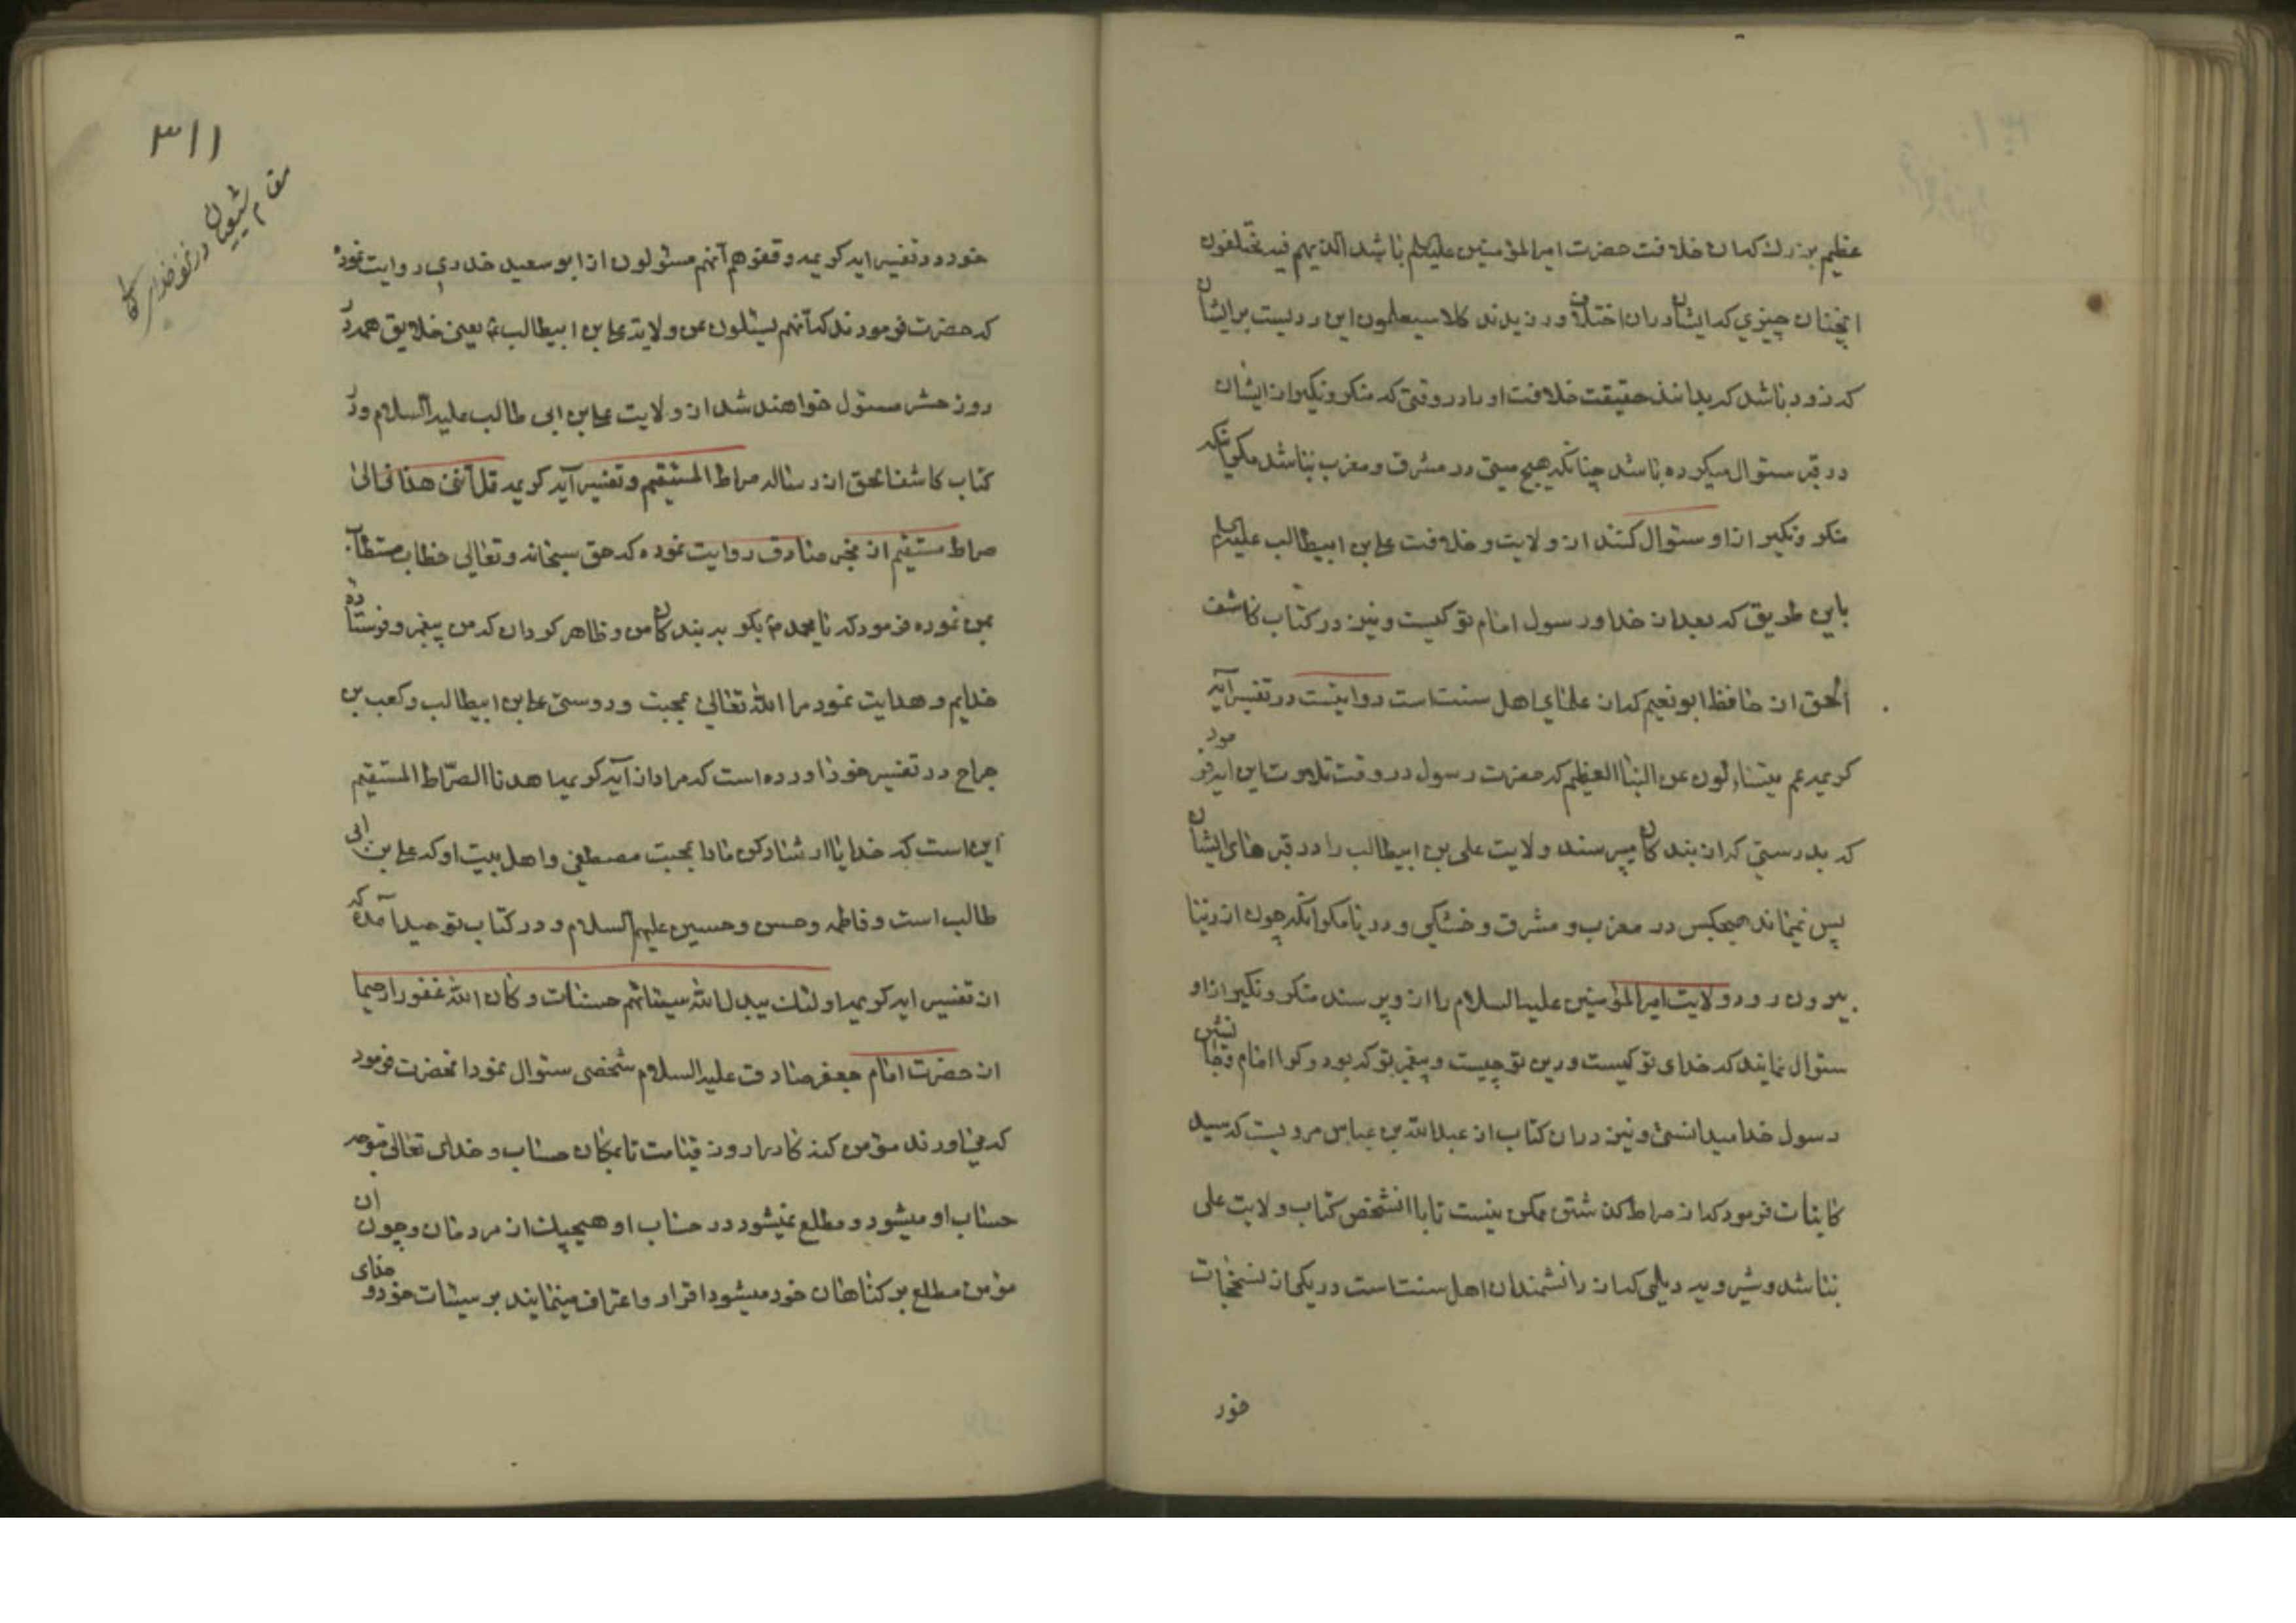 عظیم بزرك که ان خلافت حضرت امیرالمؤمنین علیه السلم باشد الذیهم فیه مختلفون
انچنان چیزي که ایشان دران اختلاف ورزیدند کلا سیعلمون این ردیست برایشان
که زود باشد که بدانند حقیقت خلافت او را در وقتی که منکر و نکیر از ایشان
در قبر سئوال میکرده باشد چنانکه هیچ میتی در مشرق و مغرب نباشد مکر انکه
منکر و نکیر از او سئوال کنند از ولایت و خلافت علی بن ابیطالب علیه السلم
باین طریق که بعد از خدا و رسول امام تو کیست و نیز در کتاب کاشف
الحق از حافظ ابو نعیم که از علمای اهل سنت است روایتست در تفسیر آیه
کریمه عم یتسائلون عن النبا العظیم که حضرت رسول در وقت تلاوت این ایه فرمود
که بدرستی که از بندکان میپرسند ولایت علی بن ابیطالب را در قبرهای ایشان
پس نمیماند هیچکس در مغرب و مشرق و خشکی و دریا مکر انکه چون از دنیا
بیرون رود ولایت امیرالمؤمنین علیه السلام را از و پرسند منکر و نکیر از او
سئوال نمایند که خدای تو کیست و دین تو چیست و پیغمبر تو که بود و کرا امام و جانشین
رسول خدا میدانستی و نیز دران کتاب از عبدالله بن عباس مرویست که سید
کاینات فرمود که از صراط کذشتن ممکن نیست تا با انشخص کتاب ولایت علی
نباشد و شیرویه دیلمی که از دانشمندان اهل سنت است در یکی از نسخجات
خود
۳۱۱
مقام شیعیان در نزد خدای تعالی
خود در تفسیر ایه کریمه وقفوهم آنهم مسئولون از ابو سعید خدري روایت نموده
که حضرت فرمودند که آنهم یسئلون عن ولایة علی بن ابیطالب ع یعنی خلایق همه در
روز حشر مسئول خواهند شد از ولایت علی بن ابی طالب علیه السلام و در
کتاب کاشف الحق از رساله صراط المستقیم و تفسیر آیه کریمه قل آننی هدانی الی
صراط مستقیم از مخبر صادق روایت نموده که حق سبحانه و تعالی خطاب مستطاب
بمن نموده فرمود که یا محمد ص بکو به بندکان من و ظاهر کردان که من پیغمبر و فرستاده
خدایم و هدایت نمود مرا الله تعالی بمحبت و دوستی علی بن ابیطالب و کعب بن
جراح در تفسیر خود اورده است که مراد از آیه کریمه اهدنا الصّراط المستقیم
این است که خدایا ارشاد کن مارا بمحبت مصطفی و اهل بیت او که علی بن ابی
طالب است و فاطمه و حسن و حسین علیهم السلام و در کتاب توحید آمده که
از تفسیر ایه کریمه اولئك یبدل الله سیئاتهم حسنات و کان الله غفورا رحیما
از حضرت امام جعفر صادق علیه السلام شخصی سئوال نمود انحضرت فرمود
که می اورند مؤمن کنه کار را روز قیامت تا بمکان حساب و خدای تعالی متوجه
حساب او میشود و مطلع نمیشود در حساب او هیچیك از مردمان و چون ان
مؤمن مطلع بر کناهان خود میشود اقرار و اعتراف مینمایند بر سیئات خود و